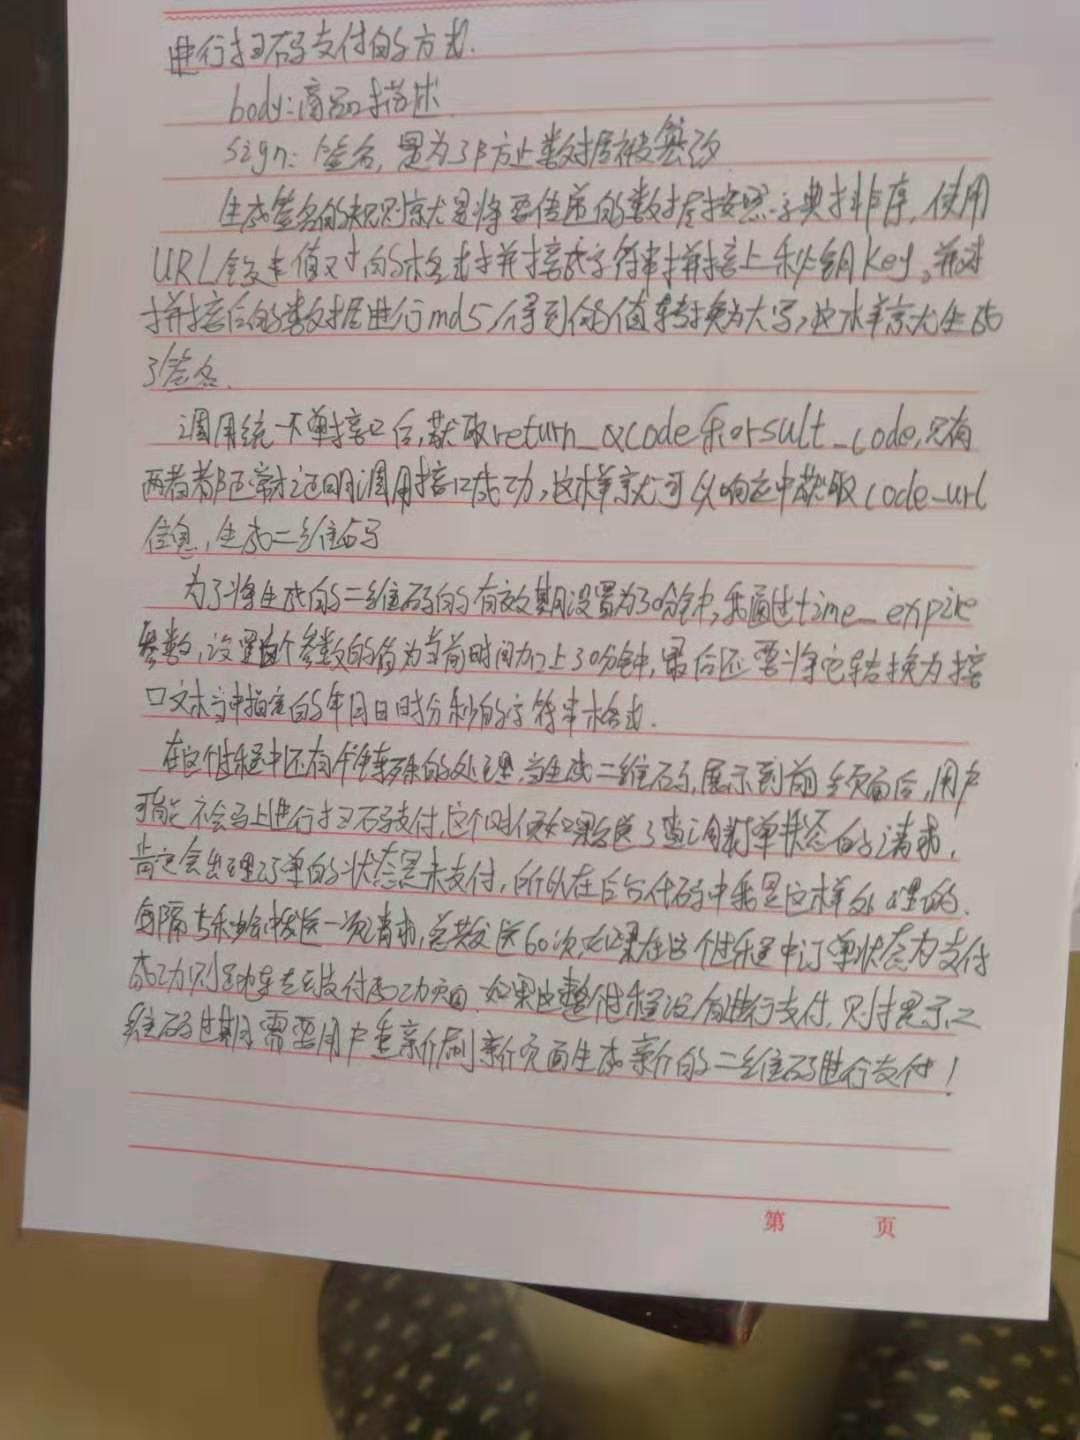 进行扫码支付的方式.
body:商品描述
sign: 签名, 是为了防止数据被篡改
生成签名的规则就是将要传递的数据按照字典排序, 使用
URL键值对的格式拼接成字符串拼接上秘钥key, 并对
拼接后的数据进行md5, 得到的值转换为大写, 这样就生成
了签名.
调用统一下单接口后, 获取return_code和result_code, 只有
两者都正常才证明调用接口成功, 这样就可以响应中获取code_url
信息, 生成二维码
为了将生成的二维码的有效期设置为30分钟, 我通过time_expire
参数, 设置这个参数的值为当前时间加上30分钟, 最后还要将它转换为接
口文本当中指定的年月日时分秒的字符串格式.
在这个过程中还有个特殊的处理, 当生成二维码, 展示到前端页面后, 用户
可能不会马上进行扫码支付, 这个时候如果发送了查询订单状态的请求,
肯定会出现订单的状态是未支付, 所以在后台代码中我是这样处理的.
每隔5秒钟发送一次请求, 总共发送60次, 如果在这个过程中订单状态为支付
成功则跳转去支付成功页面. 如果这整个过程没有进行支付, 则提示二
维码过期需要用户重新刷新页面生成新的二维码进行支付!
第 页